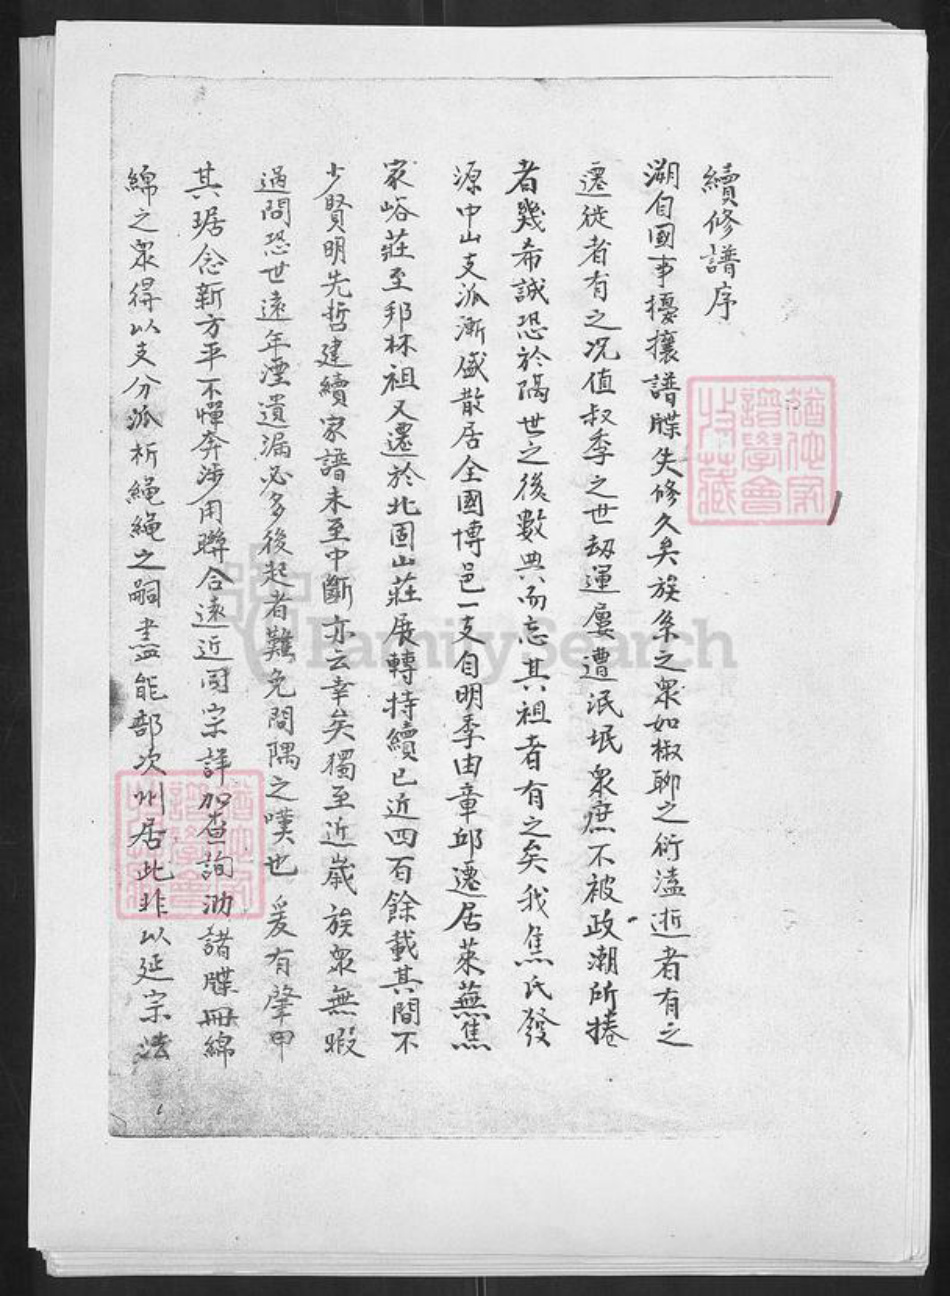 續修譜序
溯自國事擾攘譜牒失修久矣族系之衆如椒聊之衍溘逝者有之
遷徙者有之况值叔季之世劫運屢遭泯泯衆庶不被政潮所捲
者幾希誠恐於隔世之後數典而忘其祖者有之矣我焦氏發
源中山支派漸盛散居全國博邑一支自明季由章邱遷居萊蕪焦
家峪莊至邦林祖又遷於北固山莊展轉持續已近四百餘載其間不
少賢明先哲建續家譜未至中斷亦云幸矣獨至近歲族衆無暇
過問恐世遠年湮遺漏必多後起者難免問隅之嘆也爰有肇甲
其琚念新方平不憚奔涉用聯合遠近同宗詳加查詢渺諸牒冊綿
綿之衆得以支分派析繩繩之嗣盡能部次州居此非以延宗法
FamilySearch